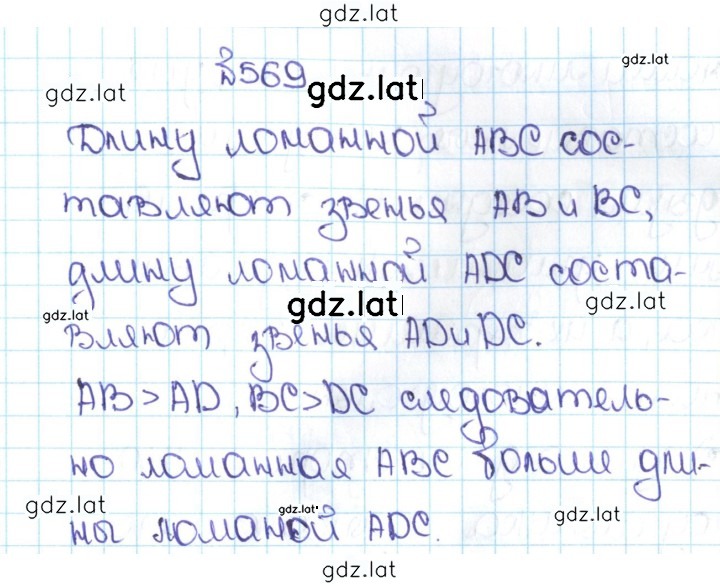 gdz.lat
№569
gdz.lat
gdz.lat
gdz.lat
Длину ломанной ABC сос-
тавляют звенья AB и BC,
длину ломанной ADC соста-
gdz.lat
gdz.lat
gdz.lat
вляют звенья AD и DC.
AB > AD, BC > DC следователь-
но ломанная ABC больше дли-
gdz.lat
gdz.lat
gdz.lat
ны ломаной ADC.
gdz.lat